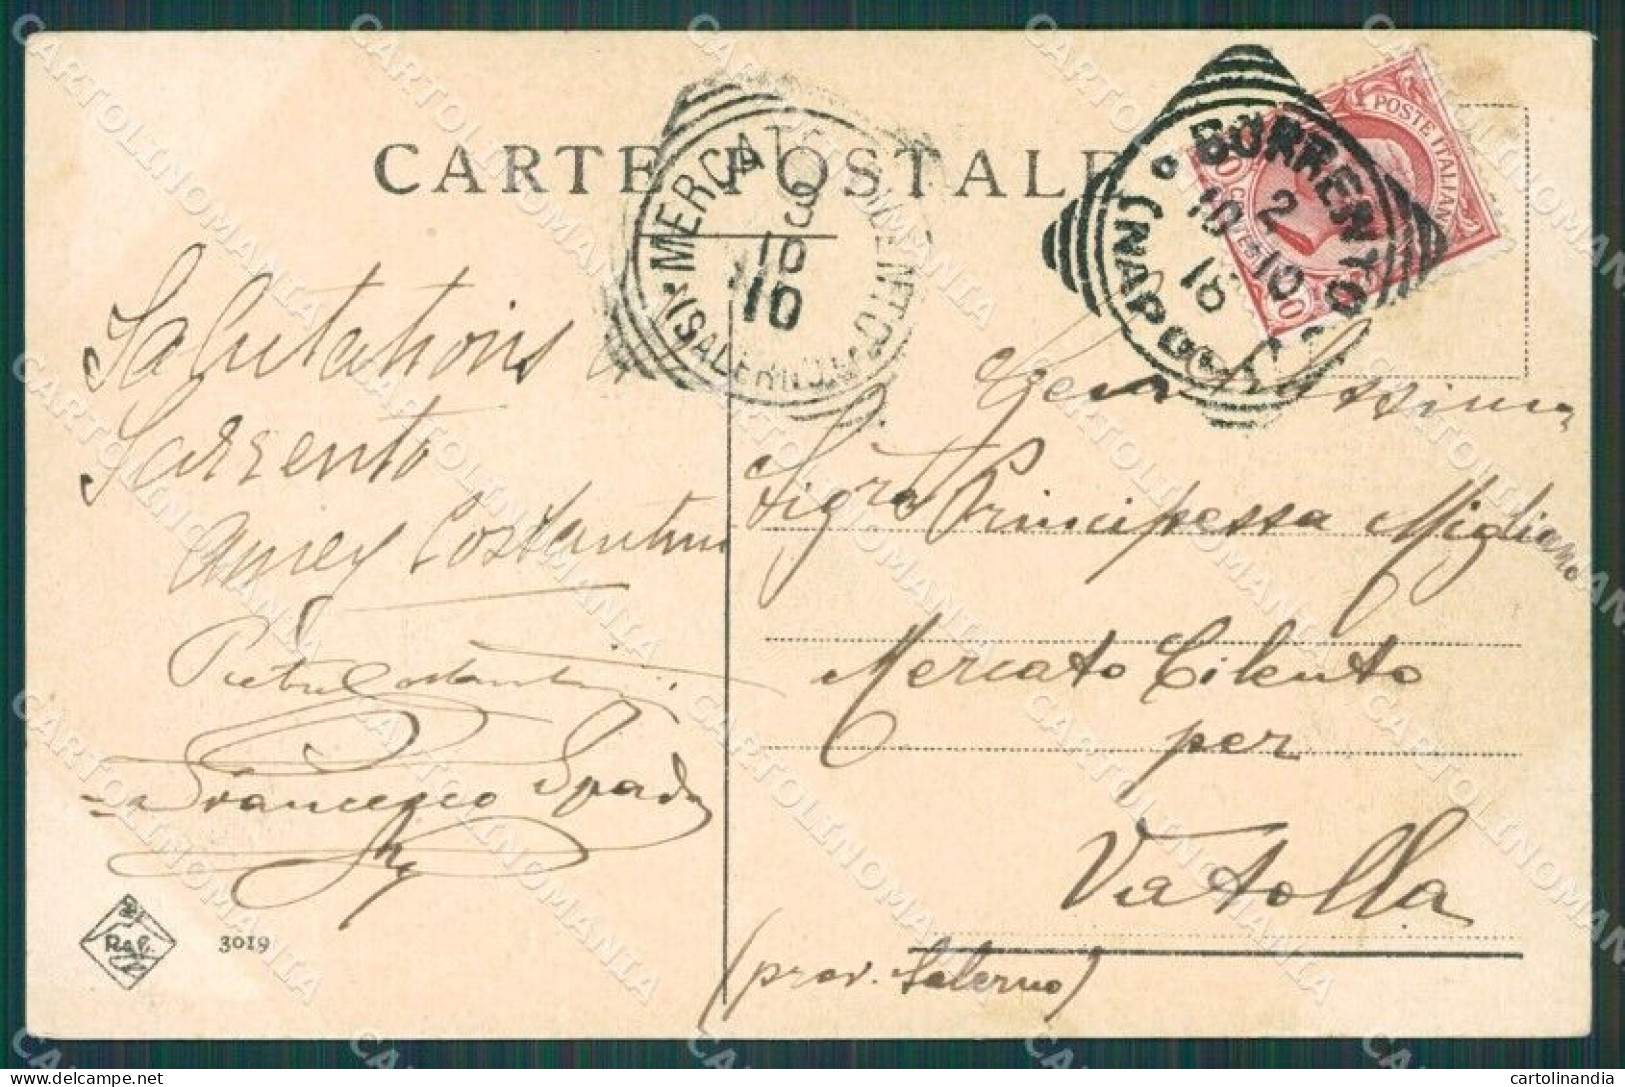 CARTE POSTALE
MERCATO CILENTO
(SALERNO)
3
10
10
SORRENTO
(NAPOLI)
2
10 10
18
POSTE ITALIANE
Salutations di
Sorrento
Costantino
Pietro Costantino
Francesco Spada
Gentilissima
Sigra Principessa Migliano
Mercato Cilento
per
Vatolla
(prov. Salerno)
3019
cartolinandia
CARTOLINOMANIA